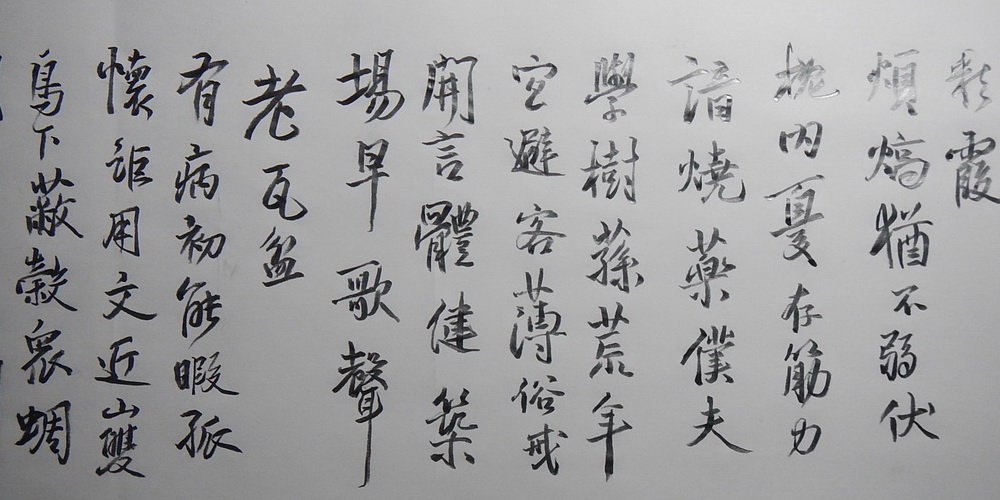 彩霞
煩熇猶不弱伏
枕內夏存筋力
諳燒藥僕夫
學樹蓀荒年
宜避客薄俗戒
開言體健築
場早歌聲
老瓦盆
有病初能暇孤
懷詎用文近山雙
鳥下蔽穀眾蜩